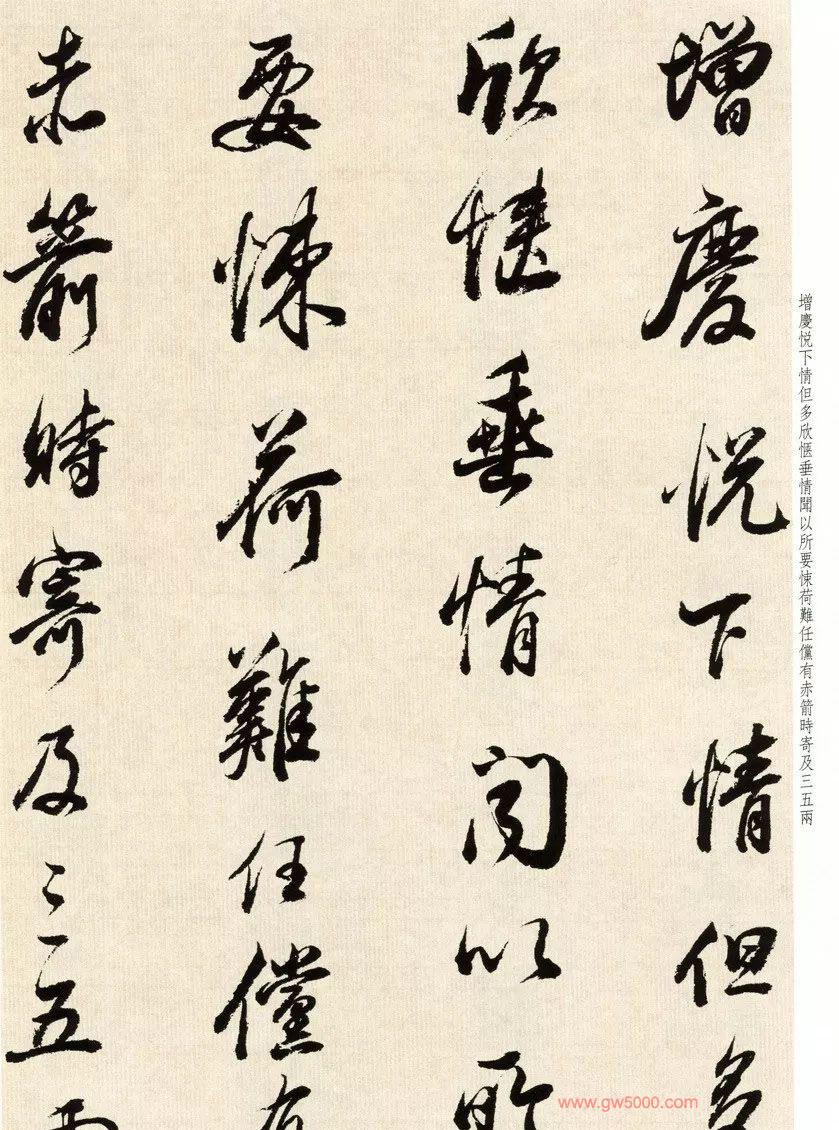 增慶悦下情但多欣愜垂情聞以所要悚荷難任儻有赤箭時寄及三五兩
增慶悦下情但多
欣愜垂情聞以所
要悚荷難任儻有
赤箭時寄及三五兩
www.gw5000.com